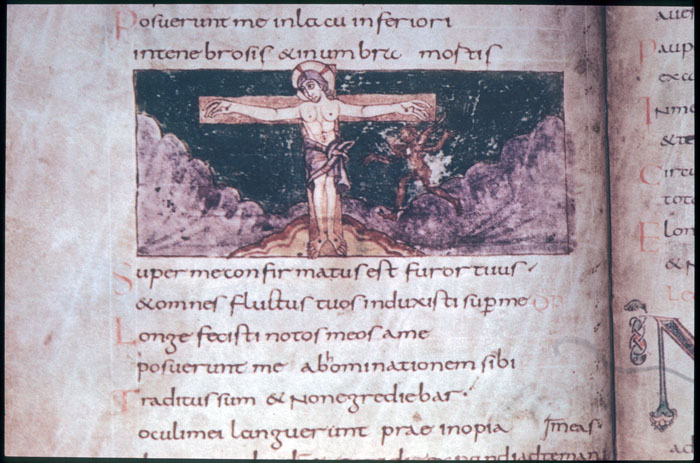 Posuerunt me inlacu inferiori
intenebrosis & inumbra mortis
Super me confirmatus est furor tuus·
& omnes fluctus tuos induxisti sup me
Longe fecisti notos meos ame
posuerunt me abhominationem sibi
Traditus sum & Nonegrediebar·
oculimei languerunt prae inopia
meas
Paup
Inme
& te
Circu
toto
Elon
& N
N